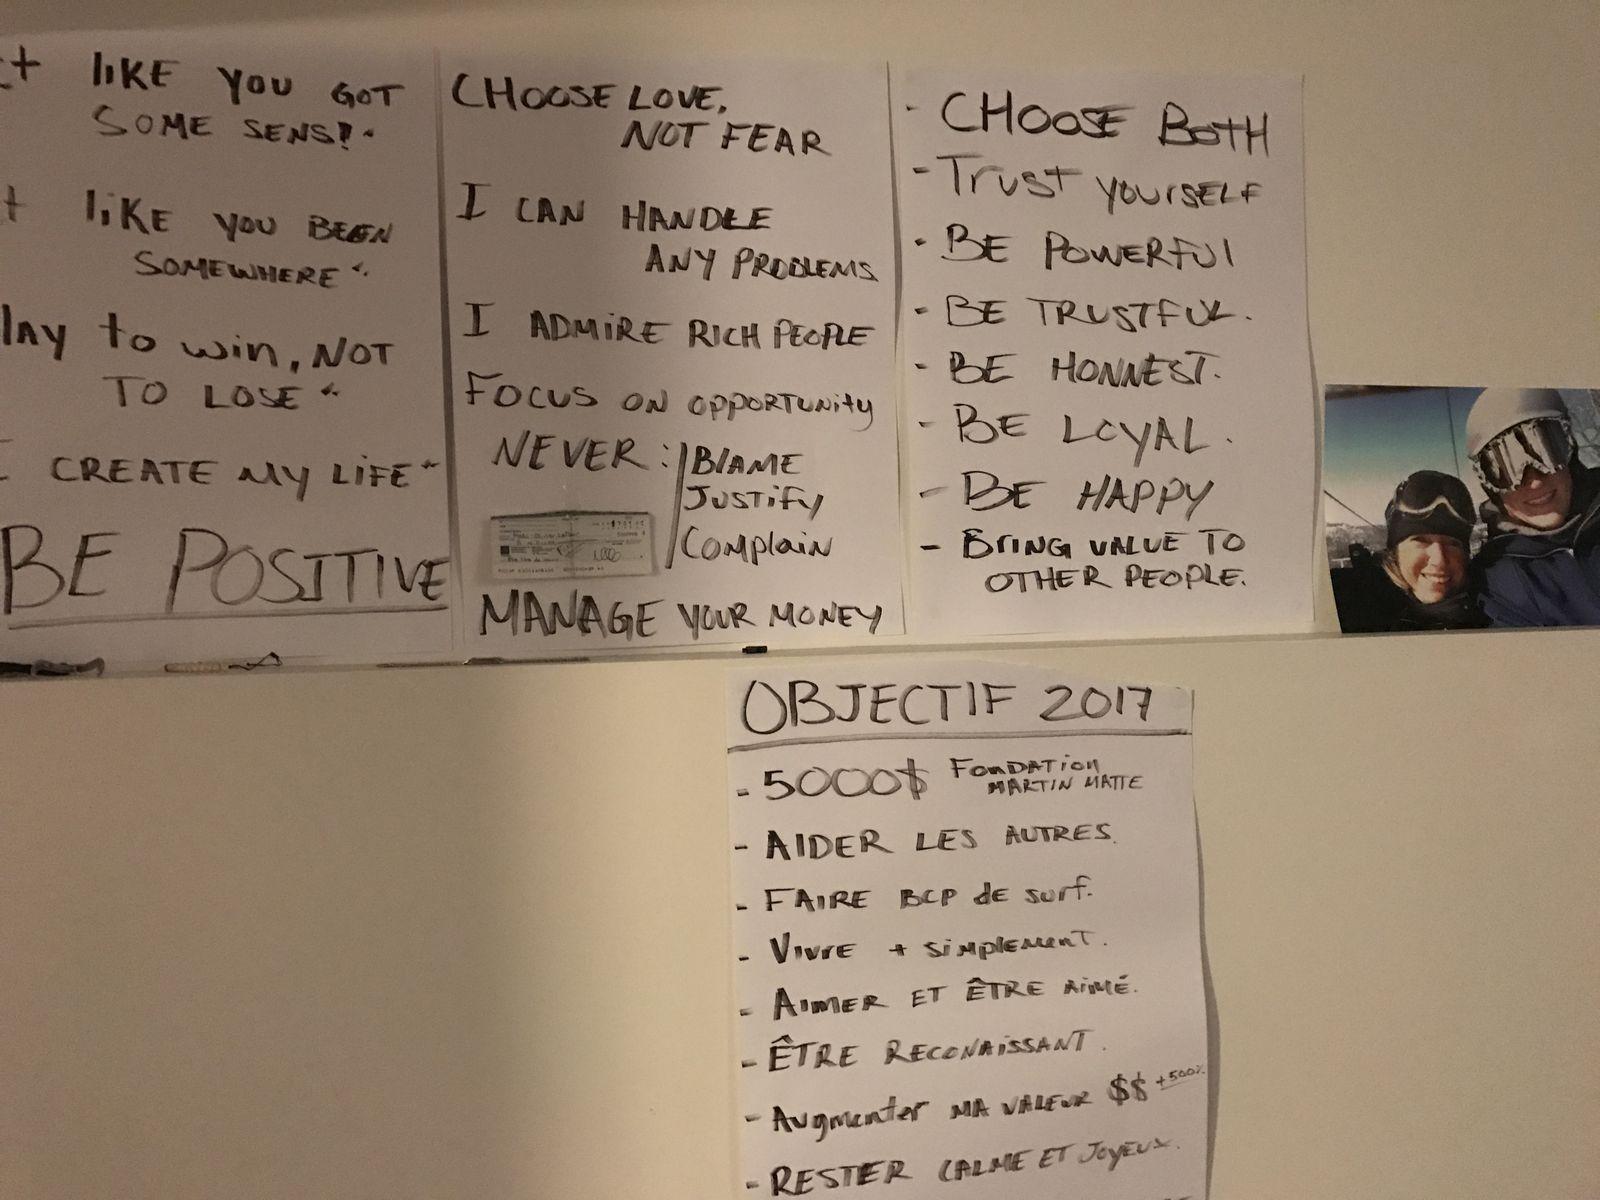 LIKE YOU GOT
SOME SENS!"
LIKE YOU BEEN
SOMEWHERE"
lAY to win, NOT
TO LOSE"
I CREATE MY LIFE"
BE POSITIVE
CHOOSE LOVE,
NOT FEAR
I CAN HANDLE
ANY PROBLEMS
I ADMIRE RICH PEOPLE
FOCUS ON OPPORTUNITY
NEVER : BLAME
JUSTIFY
COMPLAIN
MANAGE YOUR MONEY
- CHOOSE BOTH
- Trust YOURSELF
- BE POWERFUL
- BE TRUSTFUL.
- BE HONNEST.
- BE LOYAL.
- BE HAPPY
- BRING VALUE TO
OTHER PEOPLE.
OBJECTIF 2017
- 5000$ FONDATION
MARTIN MATTE
- AIDER LES AUTRES.
- FAIRE BCP de surf.
- VIVRE + simplement.
- AIMER ET ÊTRE AIMÉ.
- ÊTRE RECONAISSANT.
- Augmenter MA VALEUR $$ +500%
- RESTER CALME ET JOYEUX.